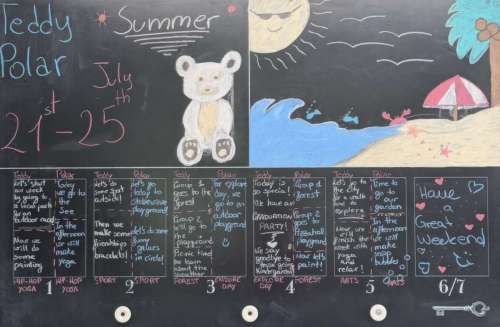 Teddy
Polar
Summer
July
21st - 25th
Teddy
Let's start
our week
by going to
a local park
for an
outdoor race!
Now we
will do
some
painting
HIP-HOP
YOGA
Polar
Today
we go to
the
See
In the
afternoon
we will
make
yoga.
HIP-HOP
YOGA
1
Teddy
Let's do
some sport
outside!
Then we
make
friendships
bracelets!
SPORT
Polar
Let's go
today to
playground!
Let's do
some
funny
games
in circle!
SPORT
2
Teddy
Group 1
goes to the
forest
Group 2
will go to
a
playground
Picnic time!
to learn
about the
weather
FOREST
Polar
For explore
day we
go to an
outdoor
playground
EXPLORE
DAY
3
Teddy
Today is
so special!
We have our
GRADUATION
PARTY!
We say
goodbye to
those going
Kindergarten!
EXPLORE
DAY
Polar
Group 1
forest
Group 2
playground
Now let's
paint!
FOREST
4
Teddy
Let's go to
the city
for a walk
and to
explore
Now we will
finish the
week with
yoga
and relax!
ARTS
Polar
Time to
go our
garden
In the
afternoon
we will
make
soap
bubbles
ARTS
5
Have
a
Great
Weekend
6/7